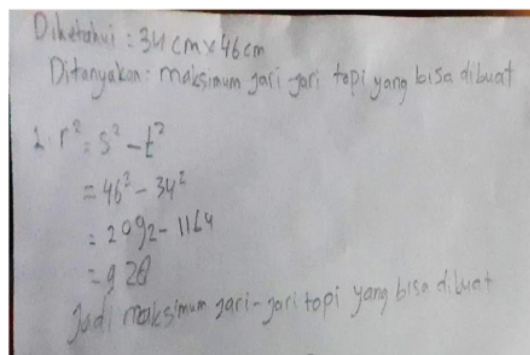 Diketahui : 34 cm x 46 cm
Ditanyakan : maksimum jari-jari topi yang bisa dibuat
1. r² = s² - t²
= 46² - 34²
= 2092 - 1164
= 928
Jadi maksimum jari-jari topi yang bisa dibuat